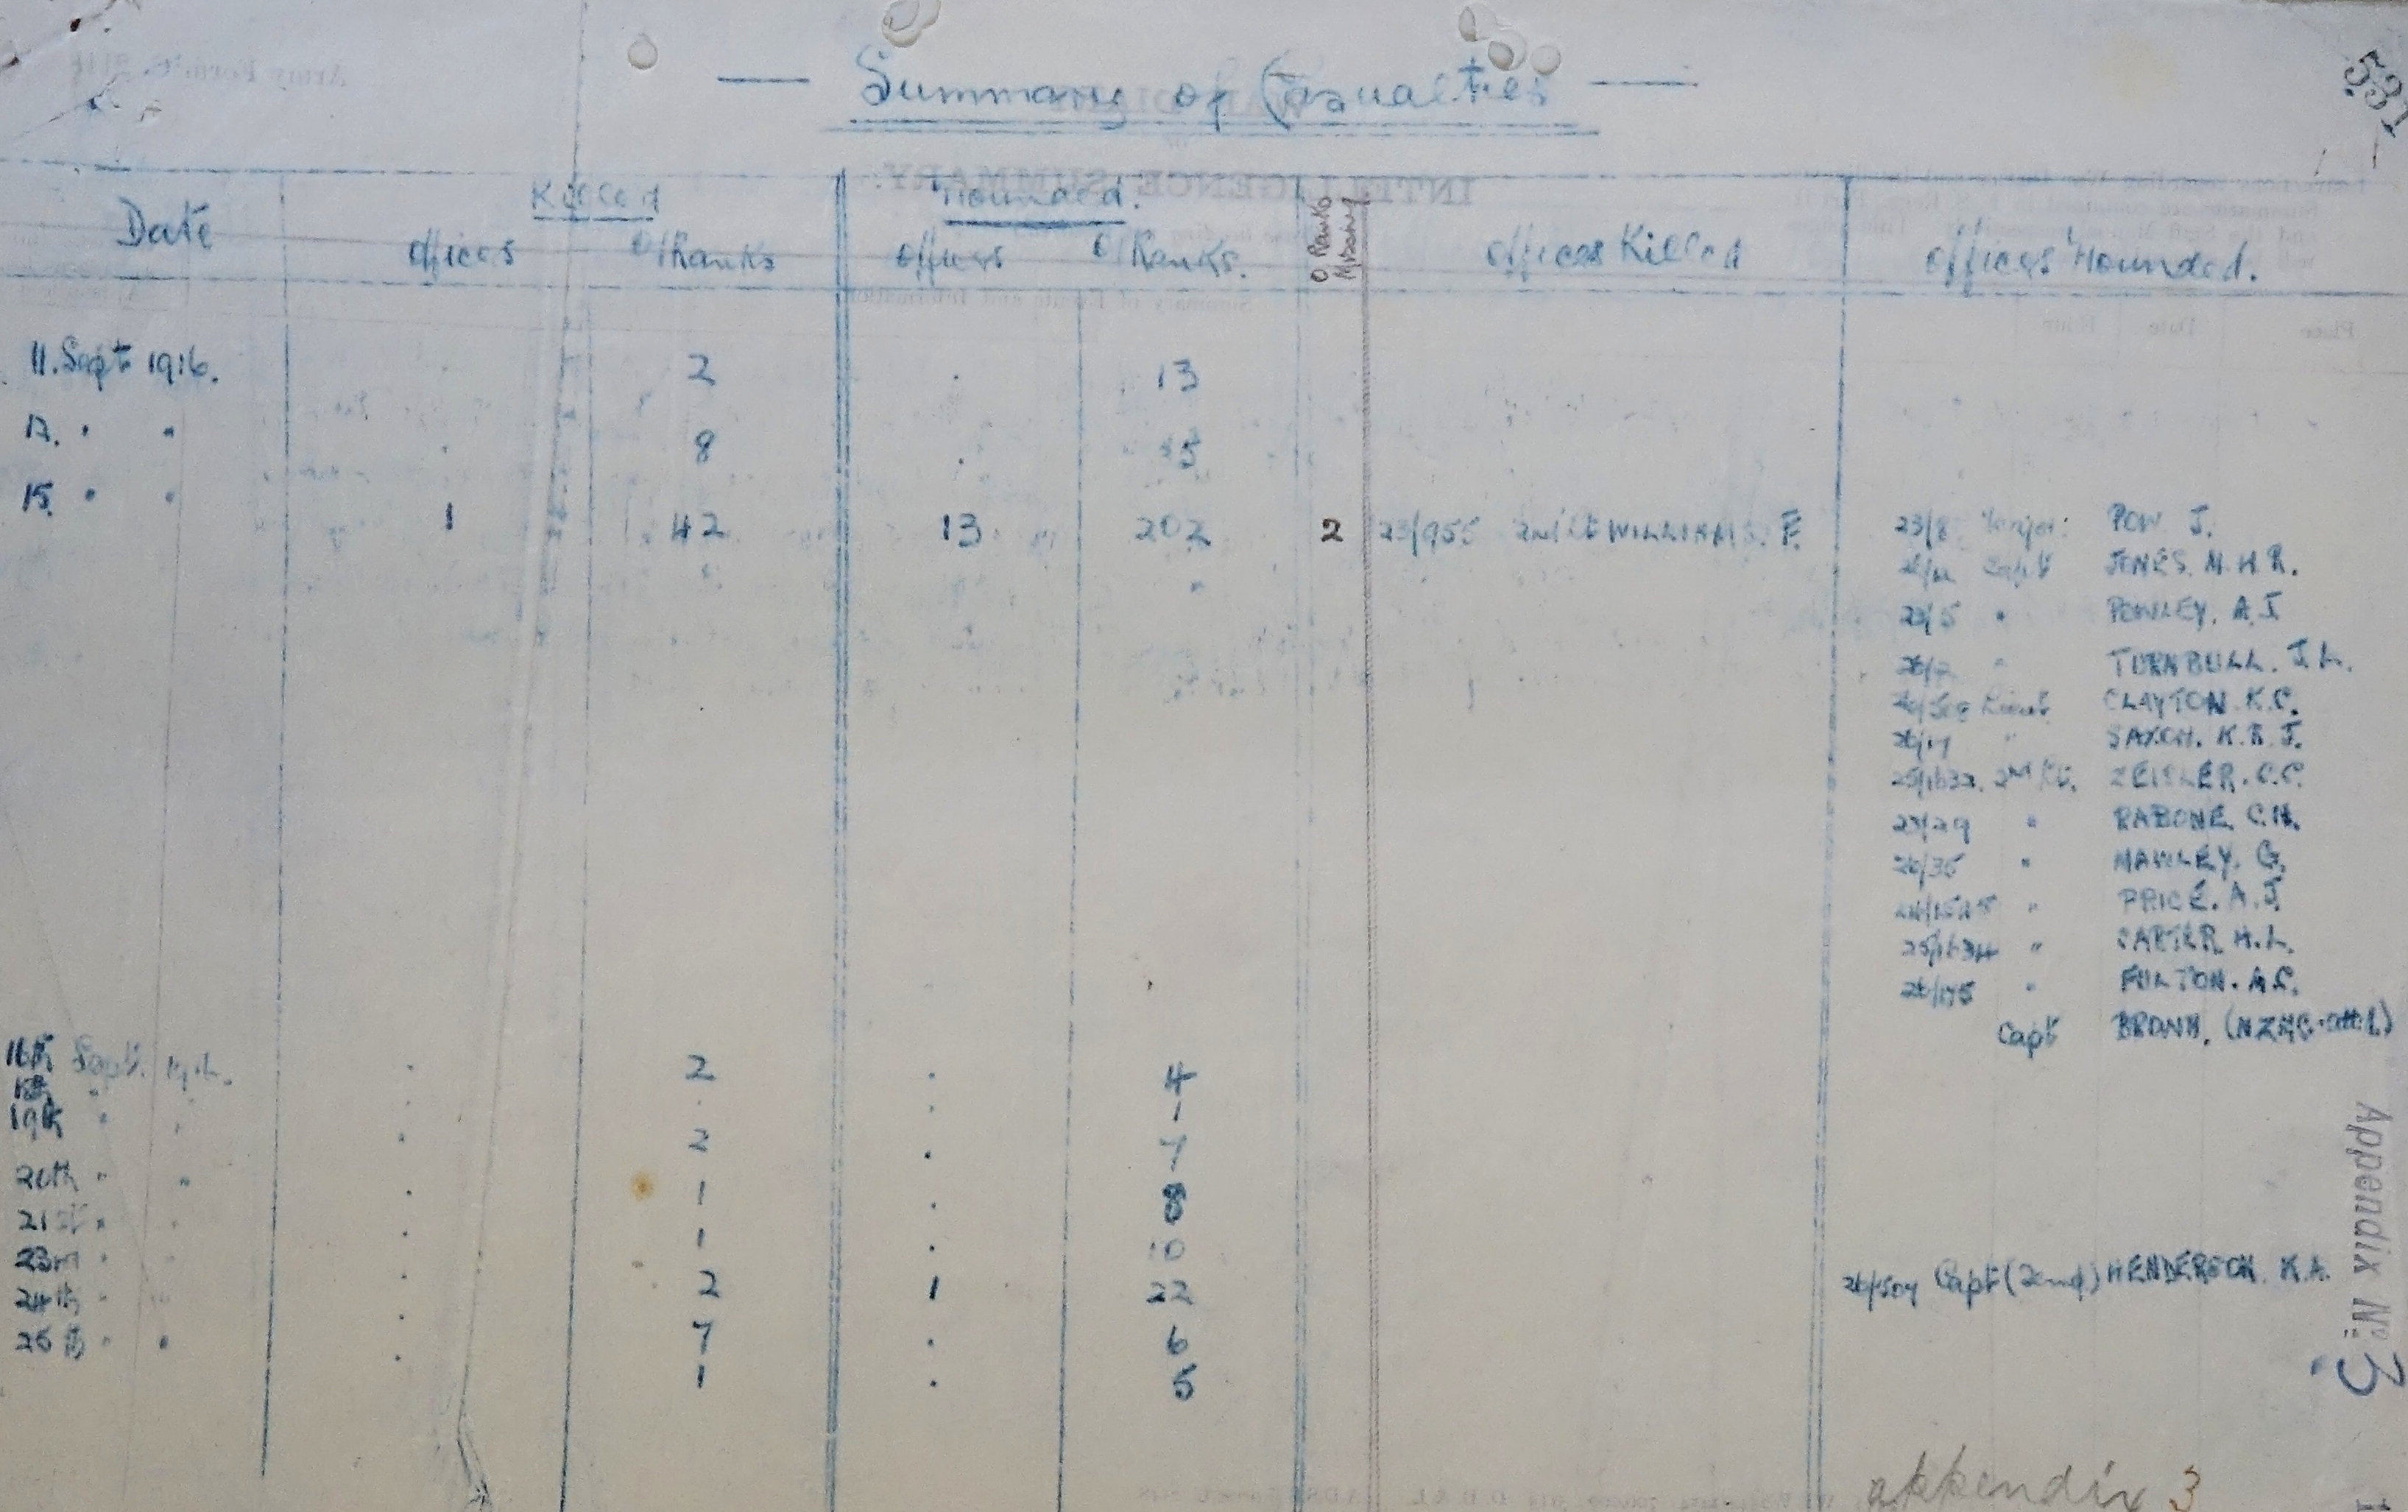 — Summary of Casualties —
531
Date Killed Wounded. O. Ranks Missing Officers Killed Officers Wounded.
Officers O/Ranks Officers O/Ranks.
11. Sept 1916. . 2 . 13
12. " " . 8 .
15. " " 1 42 13 202 2 23/955 2nd Lt WILLIAMS. F. 23/8 Major. POW J.
Capt JONES. M.H.R.
23/5 " POWLEY. A.J
26/2 " TURNBULL. J.L.
Lieut. CLAYTON K.C.
26/17 " SAXON. K.R.J.
25/1632. 2nd Lt. ZEISLER. C.C.
23/29 " RABONE. C.H.
26/35 " HAWLEY. G.
" PRICE. A.J
25/1634 " CARTER H.L.
26/175 " FULTON. A.C.
Capt BROWN. (NZMC. att'd)
16th Sept. 1916. . 2 . 4
18th " . . 1
19th " " . 2 . 7
20th " " . 1 . 8
21st " " . 1 . 10
23rd " " . 2 1 22 Capt (Temp) HENDERSON. K.A.
24th " " . 7 . 6
25th " " . 1 . 5
Appendix No. 3
appendix 3